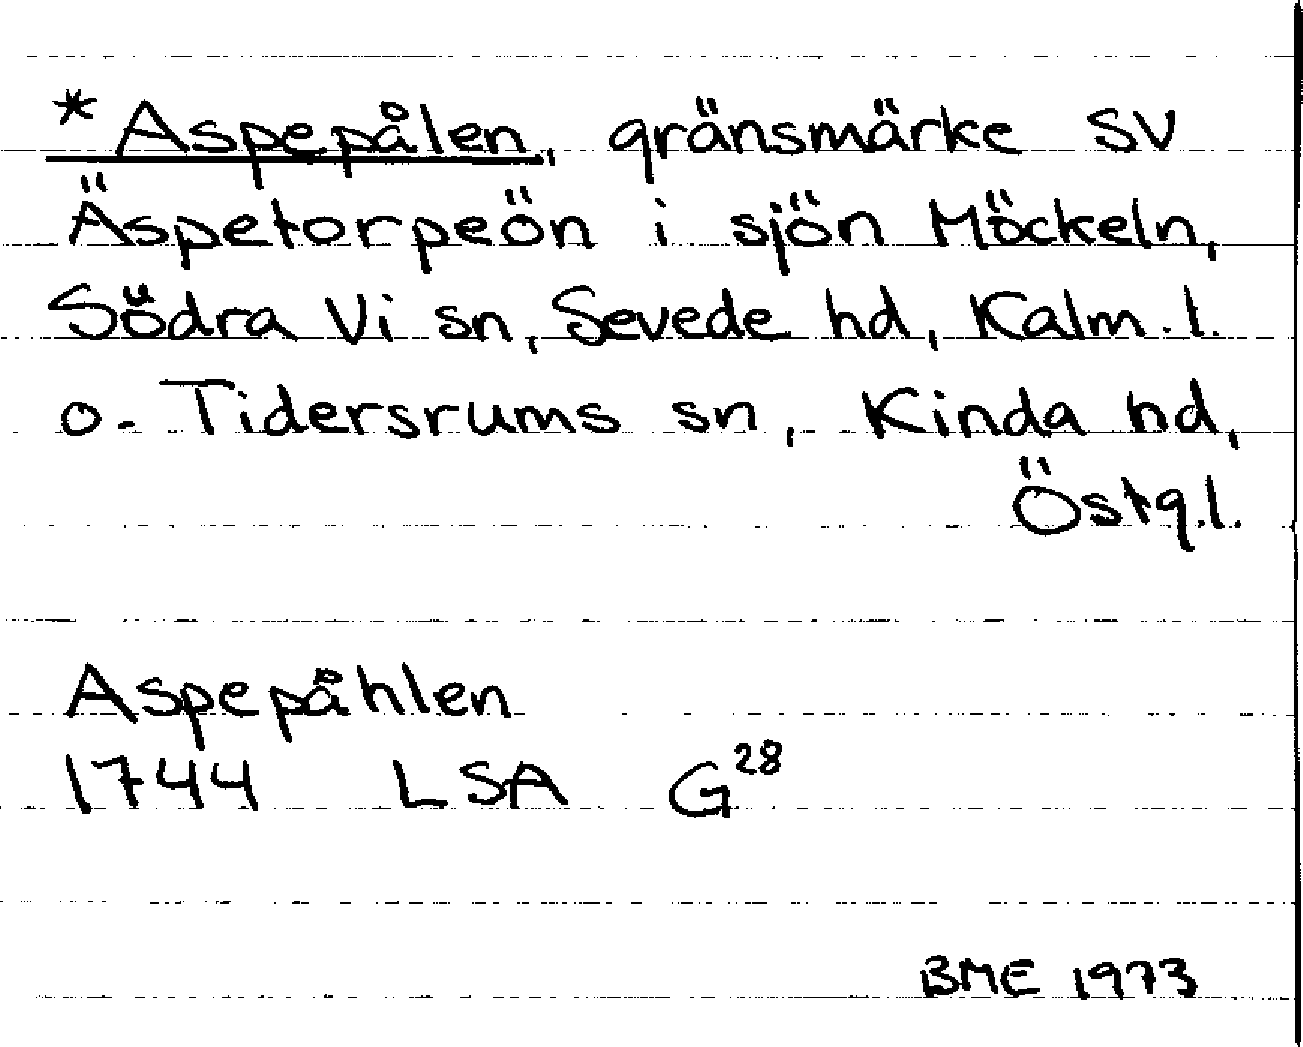 * Aspepålen, gränsmärke SV
Äspetorpeön i sjön Möckeln,
Södra Vi sn, Sevede hd, Kalm. l.
o. Tidersrums sn, Kinda hd,
Östg.l.
Aspepåhlen
1744 LSA G28
BME 1973